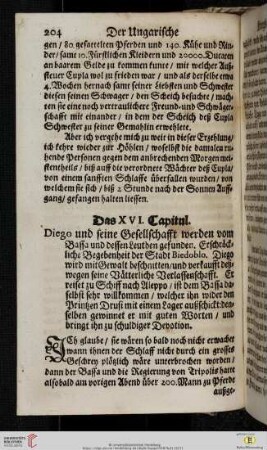 204 Der Ungarische
gen / 80 gesattelten Pferden und 140. Kühe und Rin-
der / samt 10. Fürstlichen Kleidern und 20000. Ducaten
an baarem Gelde zu kommen kunte / mit welcher Auß-
steuer Cupla wol zu frieden war / und als derselbe etwa
4. Wochen hernach samt seiner Liebsten und Schwester
diesen seinen Schwager / den Scheich besuchte / mach-
ten sie eine noch vertraulichere Freund- und Schwäger-
schafft mit einander / in dem der Scheich deß Cupla
Schwester zu seiner Gemahlin erwehlete.
Aber ich vergehe mich zu weit in dieser Erzehlung /
ich kehre wieder zur Höhlen / woselbst die damalen ru-
hende Personen gegen dem anbrechenden Morgen mei-
stentheils / biß auff die verordnete Wächter deß Cupla
von einem sanfften Schlaffe überfallen wurden / von
welchem sie sich / biß 2 Stunde nach der Sonnen Auff-
gang / gefangen halten liessen.
Das XVI. Capitul.
Diego und seine Gesellschafft werden vom
Bassa und dessen Leuthen gefunden. Erschröck-
liche Begebenheit der Stadt Biedoblo. Diego
wird mit Gewalt beschnitten / und verkaufft deß-
wegen seine Vätterliche Verlassenschafft. Er
reiset zu Schiff nach Aleppo / ist dem Bassa da-
selbst sehr willkommen / welcher ihn wider den
Printzen Drusi mit einem Lager außschickt / den-
selben gewinnet er mit guten Worten / und
bringt ihn zu schuldiger Devotion.
Ich glaube / sie wären so bald noch nicht erwachet
wann ihnen der Schlaff nicht durch ein grosses
Geschrey plötzlich wäre unterbrochen worden /
dann der Bassa und die Regierung von Tripolis hatte
alsobald am vorigen Abend über 200. Mann zu Pferde
außge-